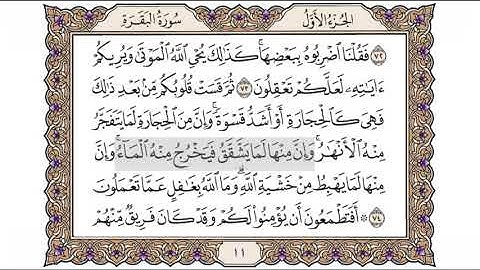 الجزء الأول
سورة البقرة
٧٢ فَقُلْنَا ٱضْرِبُوهُ بِبَعْضِهَا ۚ كَذَٰلِكَ يُحْىِ ٱللَّهُ ٱلْمَوْتَىٰ وَيُرِيكُمْ
ءَايَٰتِهِۦ لَعَلَّكُمْ تَعْقِلُونَ ٧٣ ثُمَّ قَسَتْ قُلُوبُكُم مِّنۢ بَعْدِ ذَٰلِكَ
فَهِىَ كَٱلْحِجَارَةِ أَوْ أَشَدُّ قَسْوَةً ۚ وَإِنَّ مِنَ ٱلْحِجَارَةِ لَمَا يَتَفَجَّرُ
مِنْهُ ٱلْأَنْهَٰرُ ۚ وَإِنَّ مِنْهَا لَمَا يَشَّقَّقُ فَيَخْرُجُ مِنْهُ ٱلْمَآءُ ۚ وَإِنَّ
مِنْهَا لَمَا يَهْبِطُ مِنْ خَشْيَةِ ٱللَّهِ ۗ وَمَا ٱللَّهُ بِغَٰفِلٍ عَمَّا تَعْمَلُونَ
٧٤ ۞ أَفَتَطْمَعُونَ أَن يُؤْمِنُوا۟ لَكُمْ وَقَدْ كَانَ فَرِيقٌ مِّنْهُمْ
١١